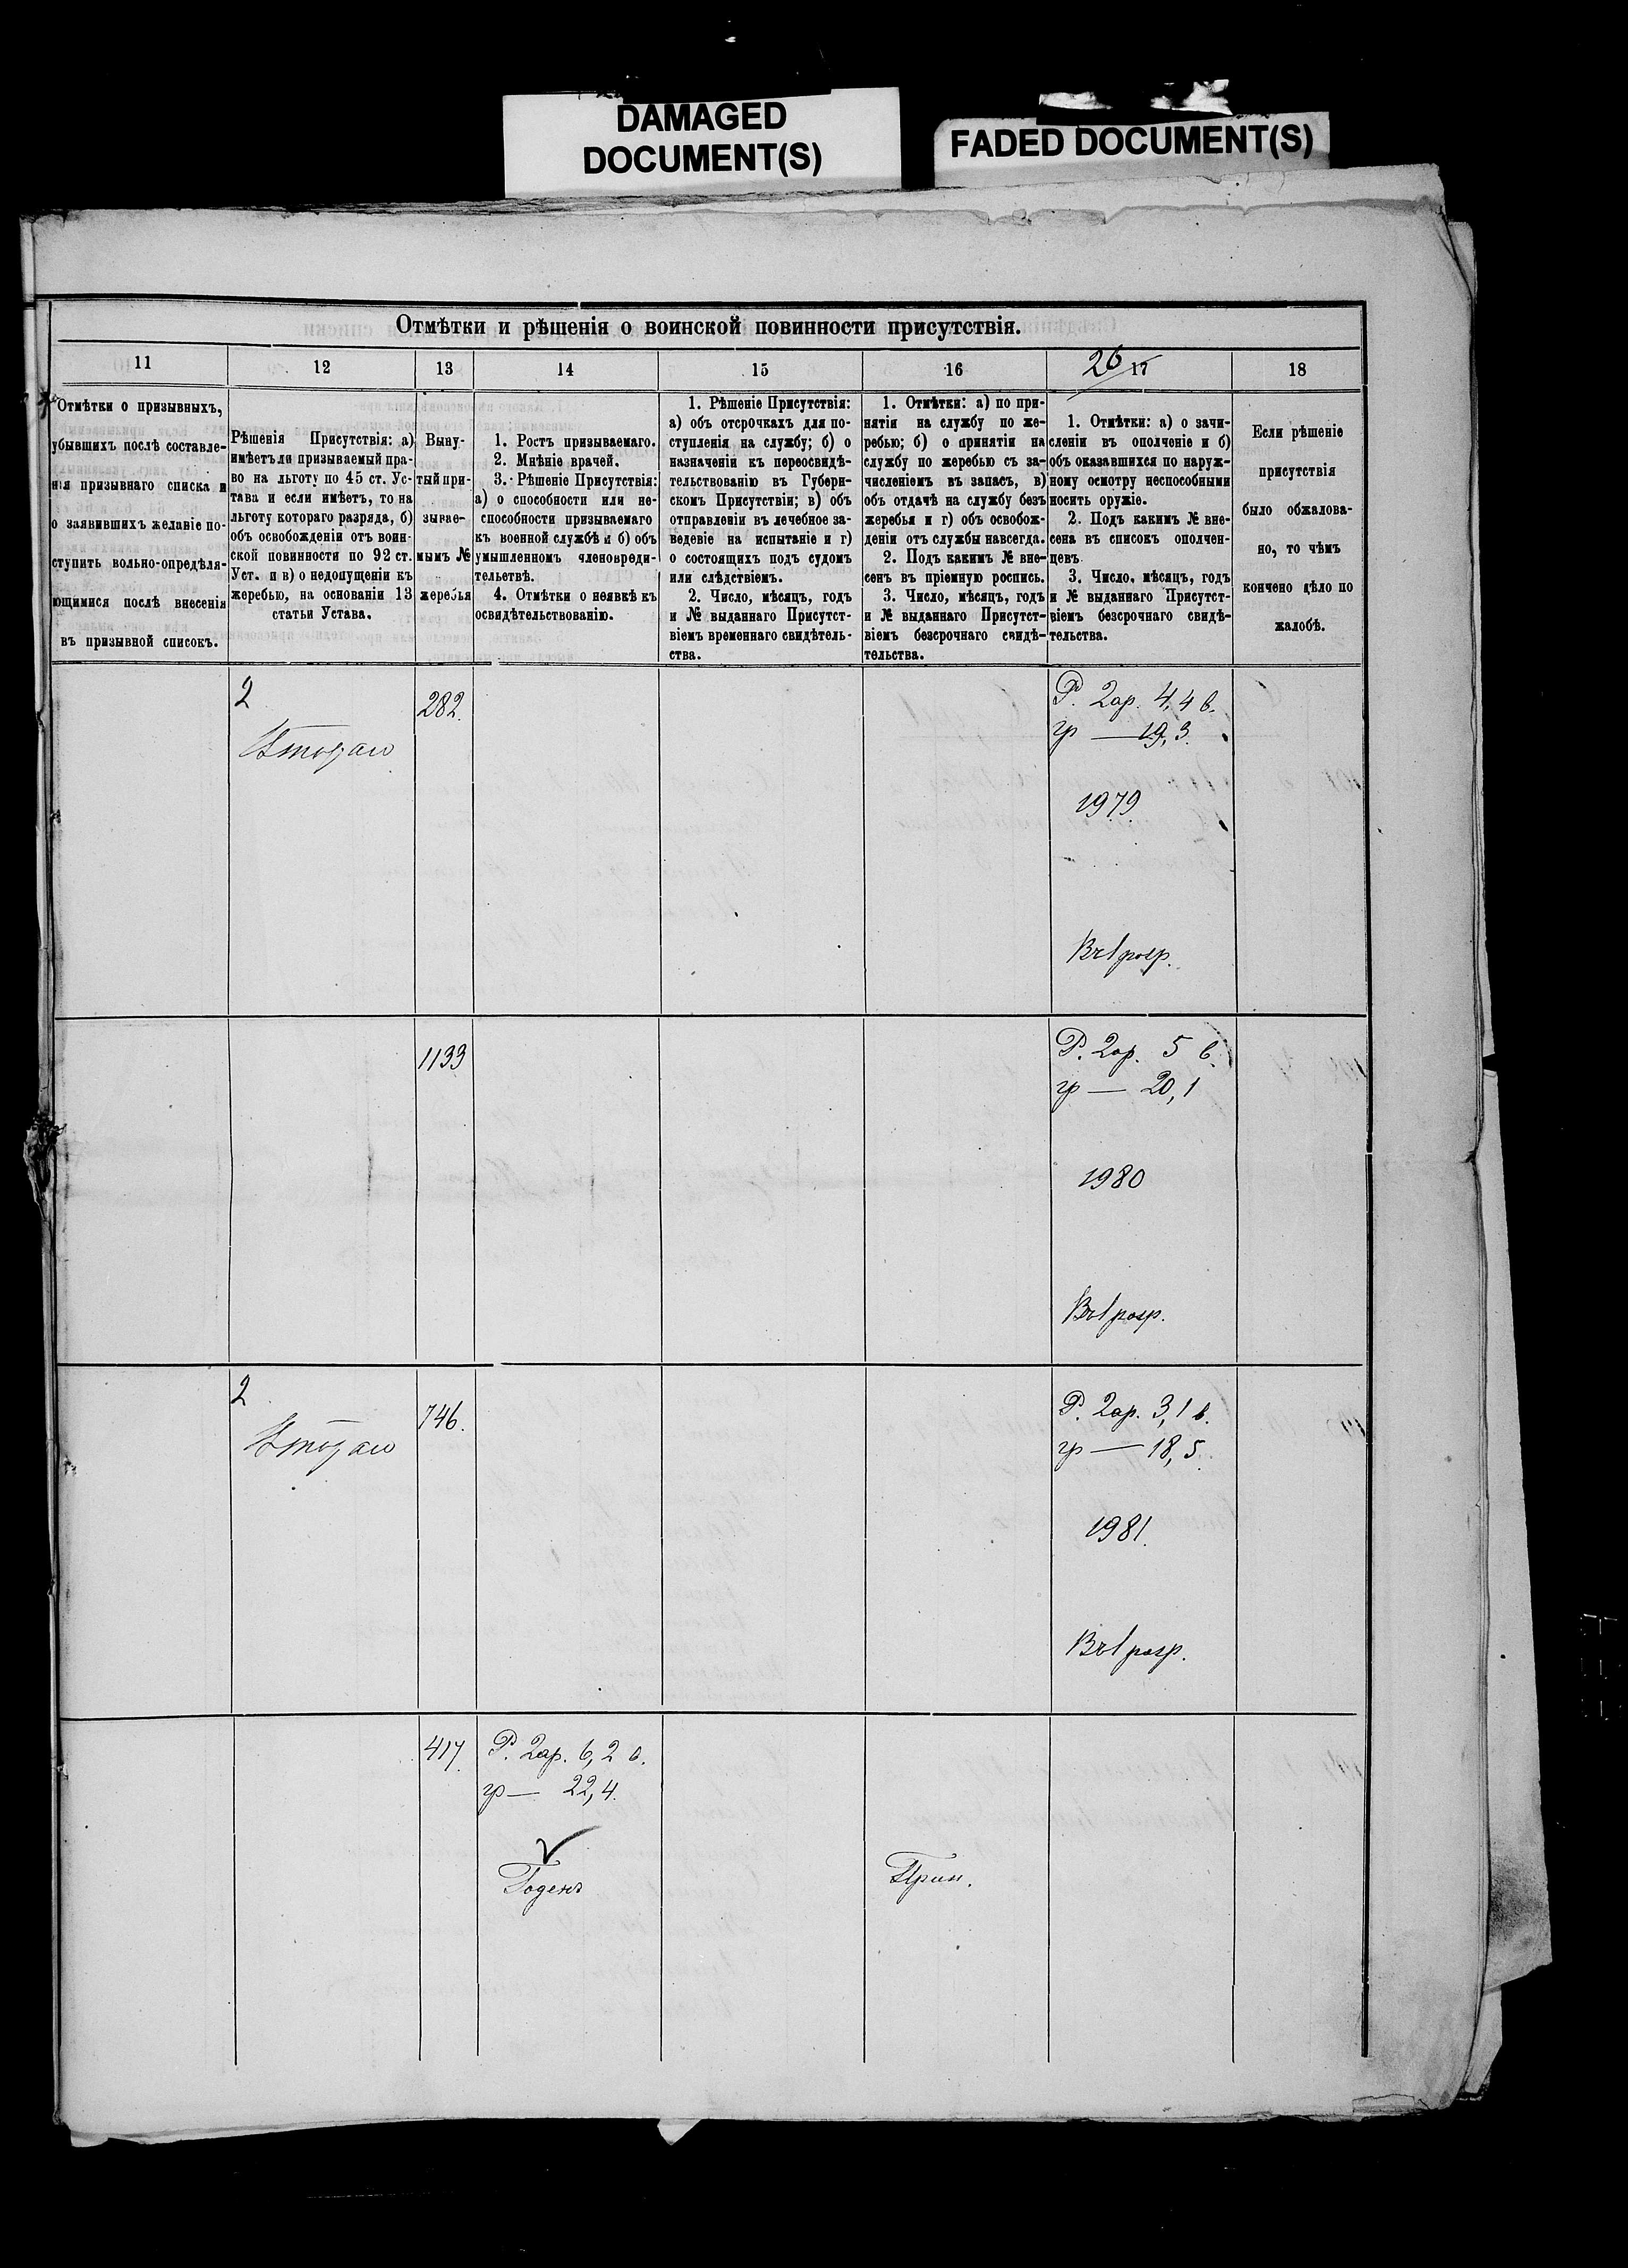 DAMAGED
DOCUMENT(S)
FADED DOCUMENT(S)
Отмѣтки и рѣшенія о воинской повинности присутствія.
11
12
13
14
15
16
26
17
18
Отмѣтки о призывныхъ,
убывшихъ послѣ составле-
нія призывнаго списка и
о заявившихъ желаніе по-
ступить вольно-опредѣля-
ющимися послѣ внесенія
въ призывной списокъ.
Рѣшенія Присутствія: а)
имѣетъ ли призываемый пра-
во на льготу по 45 ст. Ус-
тава и если имѣетъ, то на
льготу котораго разряда, б)
объ освобожденіи отъ воин-
ской повинности по 92 ст.
Уст. и в) о недопущеніи къ
жеребью, на основаніи 13
статьи Устава.
Выну-
тый при-
зывае-
мымъ №
жеребья
1. Ростъ призываемаго.
2. Мнѣніе врачей.
3. Рѣшеніе Присутствія:
а) о способности или не-
способности призываемаго
къ военной службѣ и б) объ
умышленномъ членовреди-
тельствѣ.
4. Отмѣтки о неявкѣ къ
освидѣтельствованію.
1. Рѣшеніе Присутствія:
а) объ отсрочкахъ для по-
ступленія на службу; б) о
назначеніи къ переосвидѣ-
тельствованію въ Губерн-
скомъ Присутствіи; в) объ
отправленіи въ лечебное за-
веденіе на испытаніе и г)
о состоящихъ подъ судомъ
или слѣдствіемъ.
2. Число, мѣсяцъ, годъ
и № выданнаго Присутст-
віемъ временнаго свидѣтель-
ства.
1. Отмѣтки: а) по при-
нятіи на службу по же-
ребью; б) о принятіи на
службу по жеребью съ за-
численіемъ въ запасъ, в)
объ отдачѣ на службу безъ
жеребья и г) объ освобож-
деніи отъ службы навсегда.
2. Подъ какимъ № вне-
сенъ въ пріемную роспись.
3. Число, мѣсяцъ, годъ
и № выданнаго Присутст-
віемъ безсрочнаго свидѣ-
тельства.
1. Отмѣтки: а) о зачи-
сленіи въ ополченіе и б)
объ оказавшихся по наруж-
ному осмотру неспособными
носить оружіе.
2. Подъ какимъ № вне-
сена въ списокъ ополчен-
цевъ.
3. Число, мѣсяцъ, годъ
и № выданнаго Присутст-
віемъ безсрочнаго свидѣ-
тельства.
Если рѣшеніе
присутствія
было обжалова-
но, то чѣмъ
кончено дѣло по
жалобѣ.
2
282.
Р. 2ар. 4,4 в.
гр — 19,3.
1979
1133
Р. 2ар. 5 в.
гр — 20,1
1980
2
746.
Р. 2ар. 3,1 в.
гр — 18,5.
1981.
417.
Р. 2ар. 6,2 в.
гр — 22,4.
Годенъ
Прин.